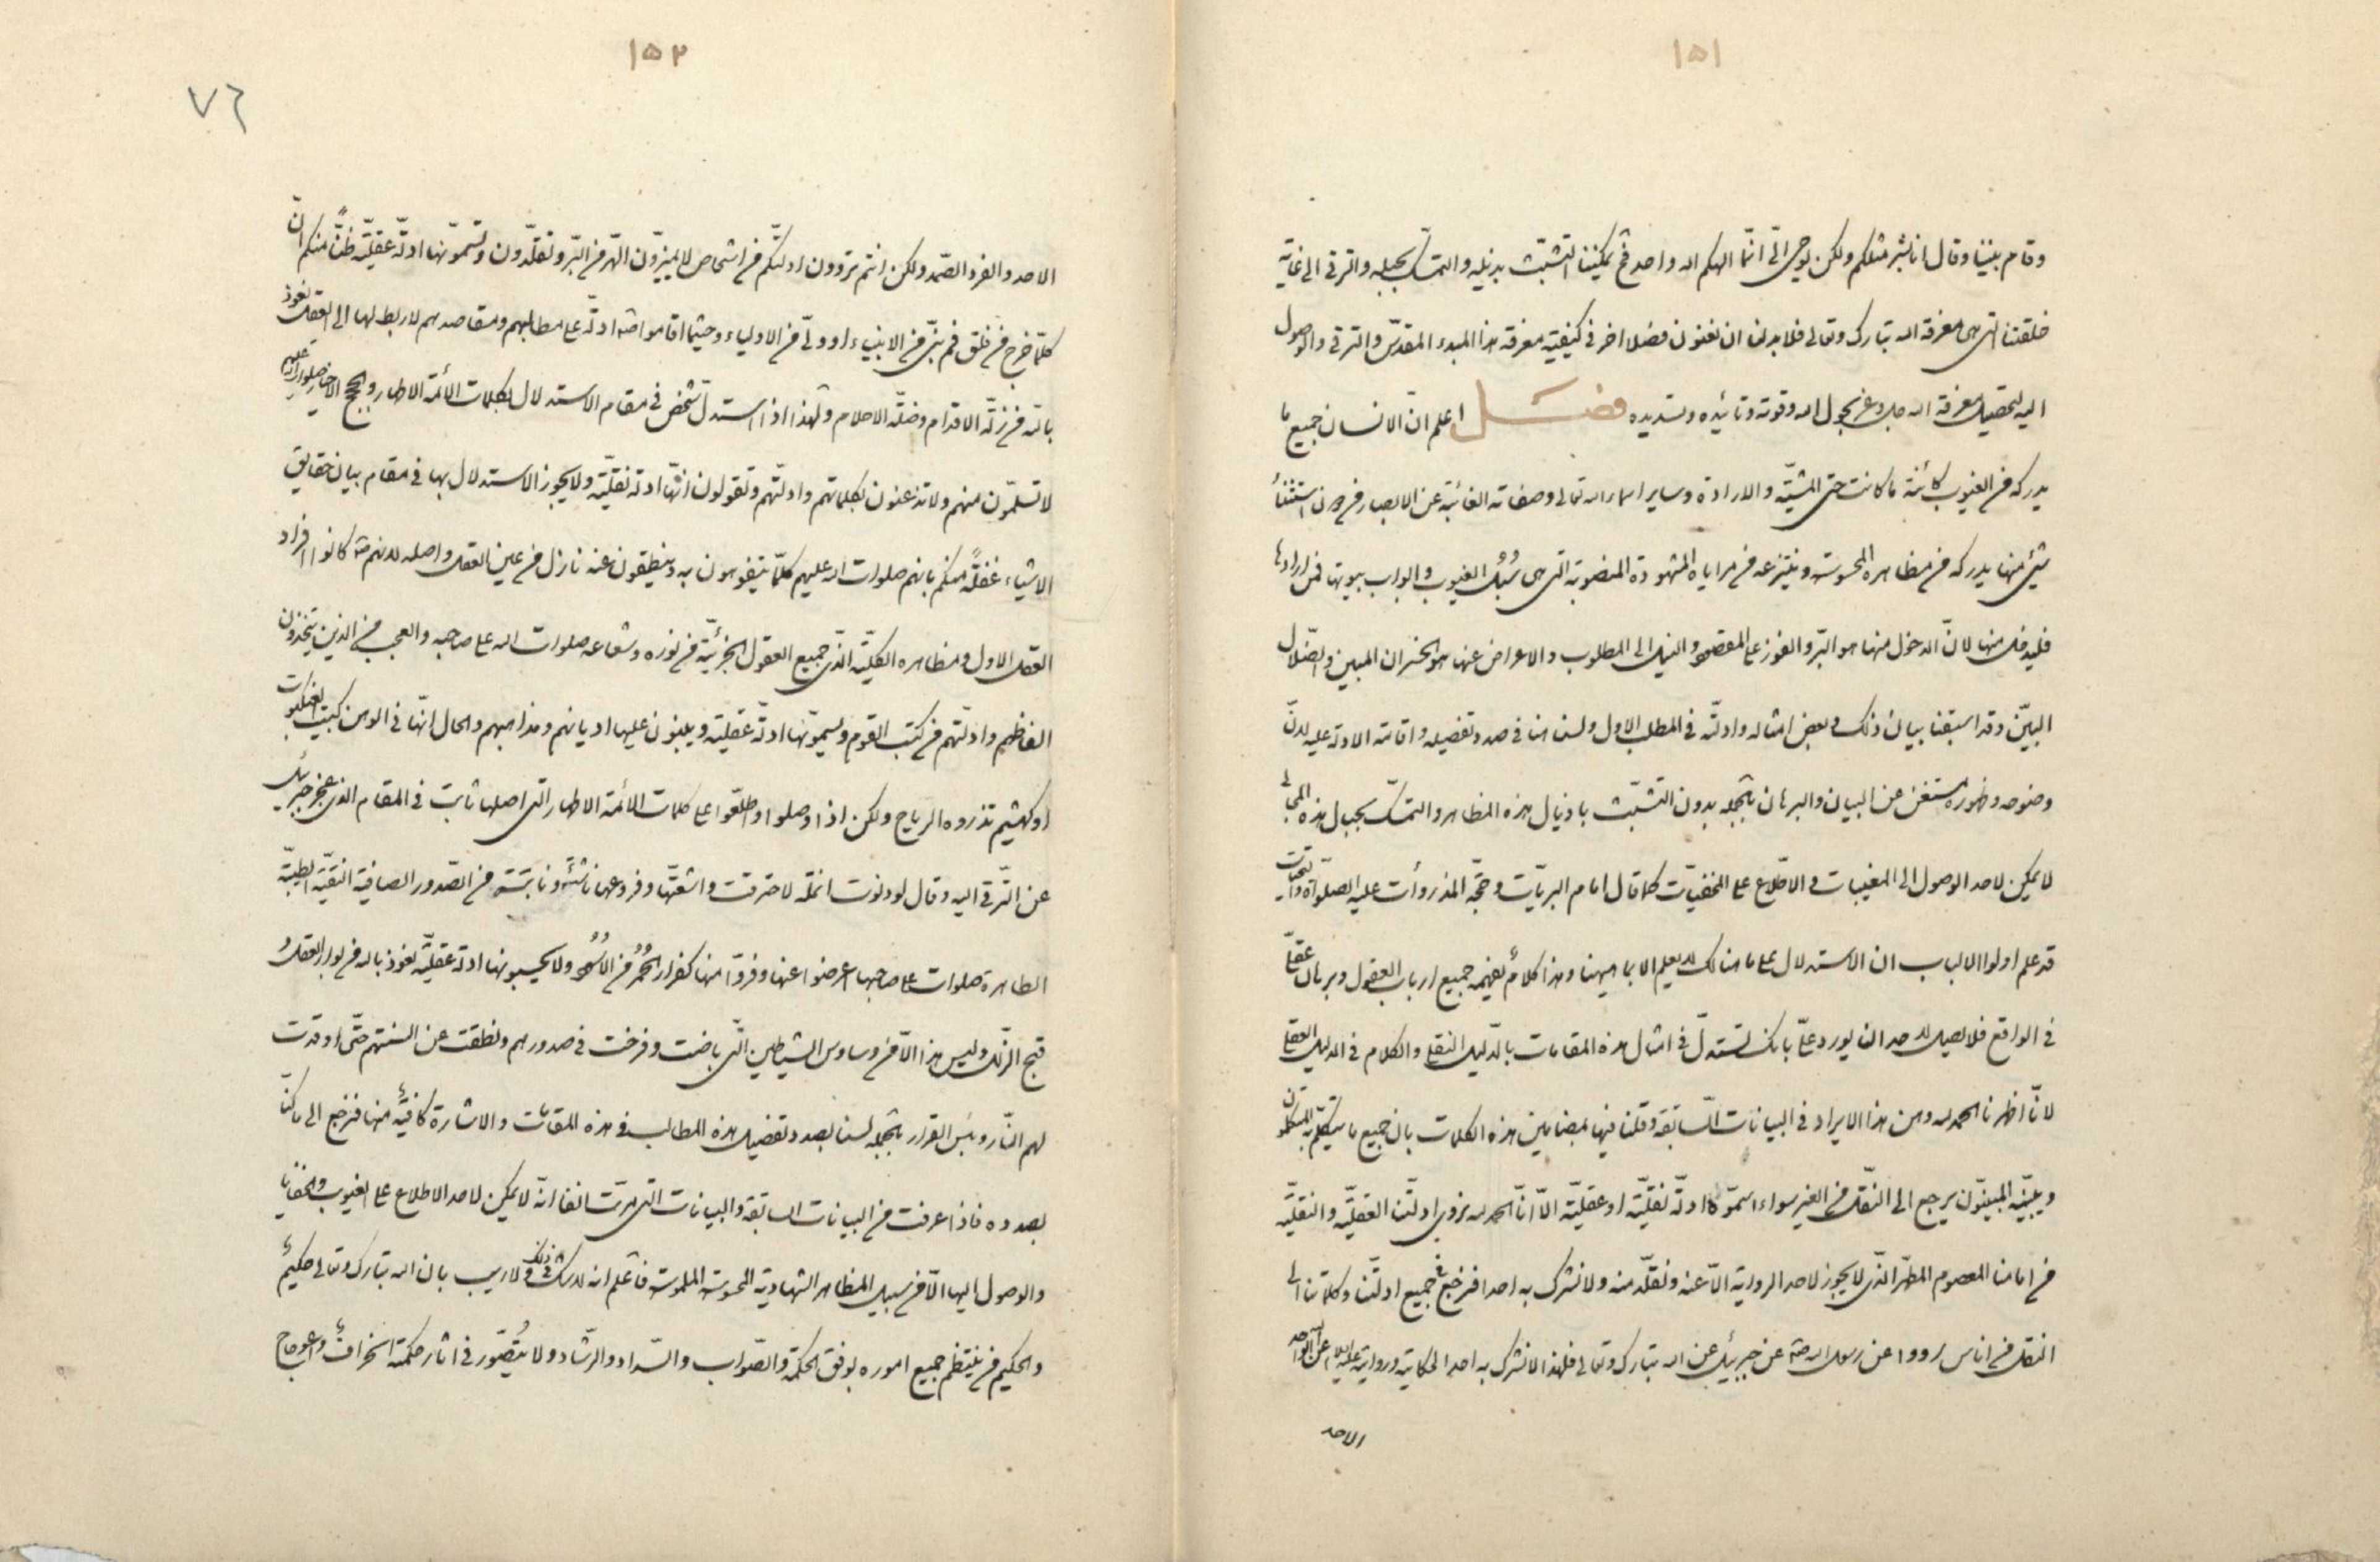 ١٥١
وقام بيننا وقال انا بشر مثلكم ولكن يوحى الىّ انّما الهكم اله واحد فح يمكننا التشبّث بذيله والتمسّك بحبله والترقى الى غاية
خلقتنا التى هى معرفة الله تبارك وتعالى فلابد لنا ان نعنون فصلا اخر فى كيفية معرفة هذا المبدء المقدّس والترقى والوصول
اليه لتحصيل معرفة الله جل وعز بحول الله وقوته وتائيده وتسديده فصل اعلم انّ الانسان جميع ما
يدركه من الغيوب كائنة ما كانت حتى المشيّة والارادة وساير اسماء الله تعالى وصفاته الغائبة عن الابصار من دون استثناء
شئ منها يدركه من مظاهره المحسوسة وينتزعه من مراياه المشهودة المنصوبة التى هى سُبُل الغيوب وابواب بيوتها فمن ارادها
فليدخل منها لانّ الدخول منها هو البرّ والفوز على المقصود والنيل الى المطلوب والاعراض عنها هو الخسران المبين والضّلال
البيّن وقد اسبقنا بيان ذلك وبعض امثاله وادلّته فى المطلب الاول ولسنا هنا فى صدد تفصيله واقامة الادلة عليه لانّ
وضوحه وظهوره مستغن عن البيان والبرهان بالجمله بدون التشبّث باذيال هذه المظاهر والتمسّك بحبال هذه المجالى
لا يمكن لاحد الوصول الى المغيبات والاطّلاع على المخفيّات كما قال امام البريّات وحجّة المذروأت عليه الصلوة والتحيّات
قد علم اولوا الالباب ان الاستدلال على ما هنالك لا يعلم الا بما هيهنا وهذا كلامٌ يفهمه جميع ارباب العقول وبرهان عقلىّ
فى الواقع فلا يصل لاحد ان يورد علىّ بانك تستدلّ فى امثال هذه المقامات بالدّليل النقلى والكلام فى الدليل العقلى
لانّا اظهرنا الحمد لله وهن هذا الايراد فى البيانات السّابقة وقلنا فيها بمضامين هذه الكلمات بان جميع ما يتكلّم به المتكلّمون
ويبيّنه المبيّنون يرجع الى النقل من الغير سواء اسمّوها ادلّة نقليّة او عقليّة الّا انّا الحمد لله نروى ادلّتنا العقليّة والنقليّة
من امامنا المعصوم المطهّر الذّى لا يجوز لاحد الرواية الّا عنه ونقلّد منه ولا نشرك به احدا فنرجع جميع ادلّتنا وكلماتنا الى
النقل من اناس رووا عن رسول الله ص عن جبرئيل عن الله تبارك وتعالى فلهذا لا نشرك به احدا لحكايته وروايته عليه السلام عن الله الواحد
الاحد
١٥٢
٧٦
الاحد والفرد الصّمد ولكن انتم تروون ادلّتكم من اشخاص لا يميزّون الهرّ من البّر وتقلّدون وتسمّونها ادلّة عقليّة ظنّاً منكم انّ
كلمّا خرج من خلق فم نبىّ من الانبياء او ولىّ من الاولياء وحيثما اقاموا ادلّة على مطالبهم ومقاصدهم لا ربط لها الى العقل نعوذ
بالله من زلّة الاقدام وضلّة الاحلام ولهذا اذا استدلّ شخص فى مقام الاستدلال بكلمات الأئمة الاطهار والحجج الاخيار صلوات الله عليهم
لا تسلمّون منهم ولا تذعنون بكلماتهم وادلّتهم وتقولون انهّا ادلة نقليّة ولا يجوز الاستدلال بها فى مقام بيان حقايق
الاشياء غفلةً منكم بانهم صلوات الله عليهم كلمّا يتفوهون به وينطقون عنه نازل من عين العقل واصله لانهم ص كانوا افراد
العقل الاول ومظاهره الكليّة الذّى جميع العقول الجزئيّة من نوره وشعاعه صلوات الله على صاحبه والعجب من الذين يتخذون
الفاظهم وادلّتهم من كتب القوم ويسمّونها ادلّة عقلية ويبنون عليها اديانهم ومذاهبهم والحال انهّا فى الوهن كبيت العنكبوت
او كهشيم تذروه الرياح ولكن اذا وصلوا واطّلعوا على كلمات الائمة الاطهار التى اصلها ثابت فى المقام الذى عجز جبرئيل
عن التّرقى اليه وقال لو دنوت انملة لاحترقت واشعّتها وفروعها ناشئة ونابتة من الصّدور الصافية النقيّة الطيبّة
الطاهرة صلوات على صاحبها اعرضوا عنها وفرّوا منها كفرار الحُمُر من الاُسُد ولا يحسبونها ادلة عقليّة نعوذ بالله من بوار العقل و
قبح الزلل وليس هذا الّا من وساوس الشياطين التّى باضت وفرخت فى صدورهم ونطقت عن السنتهم حتّى اوقدت
لهم النّار وبئس القرار بالجمله لسنا بصدد تفصيل هذه المطالب فى هذه المقامات والاشارة كافيةٌ منها فنرجع الى ما كنا
بصدده فاذا عرفت من البيانات السابقة والبيانات التى مرّت انفا انّه لا يمكن لاحد الاطلاع على الغيوب والخفايا
والوصول اليها الّا من سبيل المظاهر الشهادية المحسوسة الملموسة فاعلم انه لا شك فى ذلك ولا ريب بان الله تبارك وتعالى حكيمٌ
والحكيم من ينتظم جميع اموره بوفق الحكمة والصّواب والسّداد والرشّاد ولا يُتصّور فى اثار حكمته انحرافٌ واعوجاج